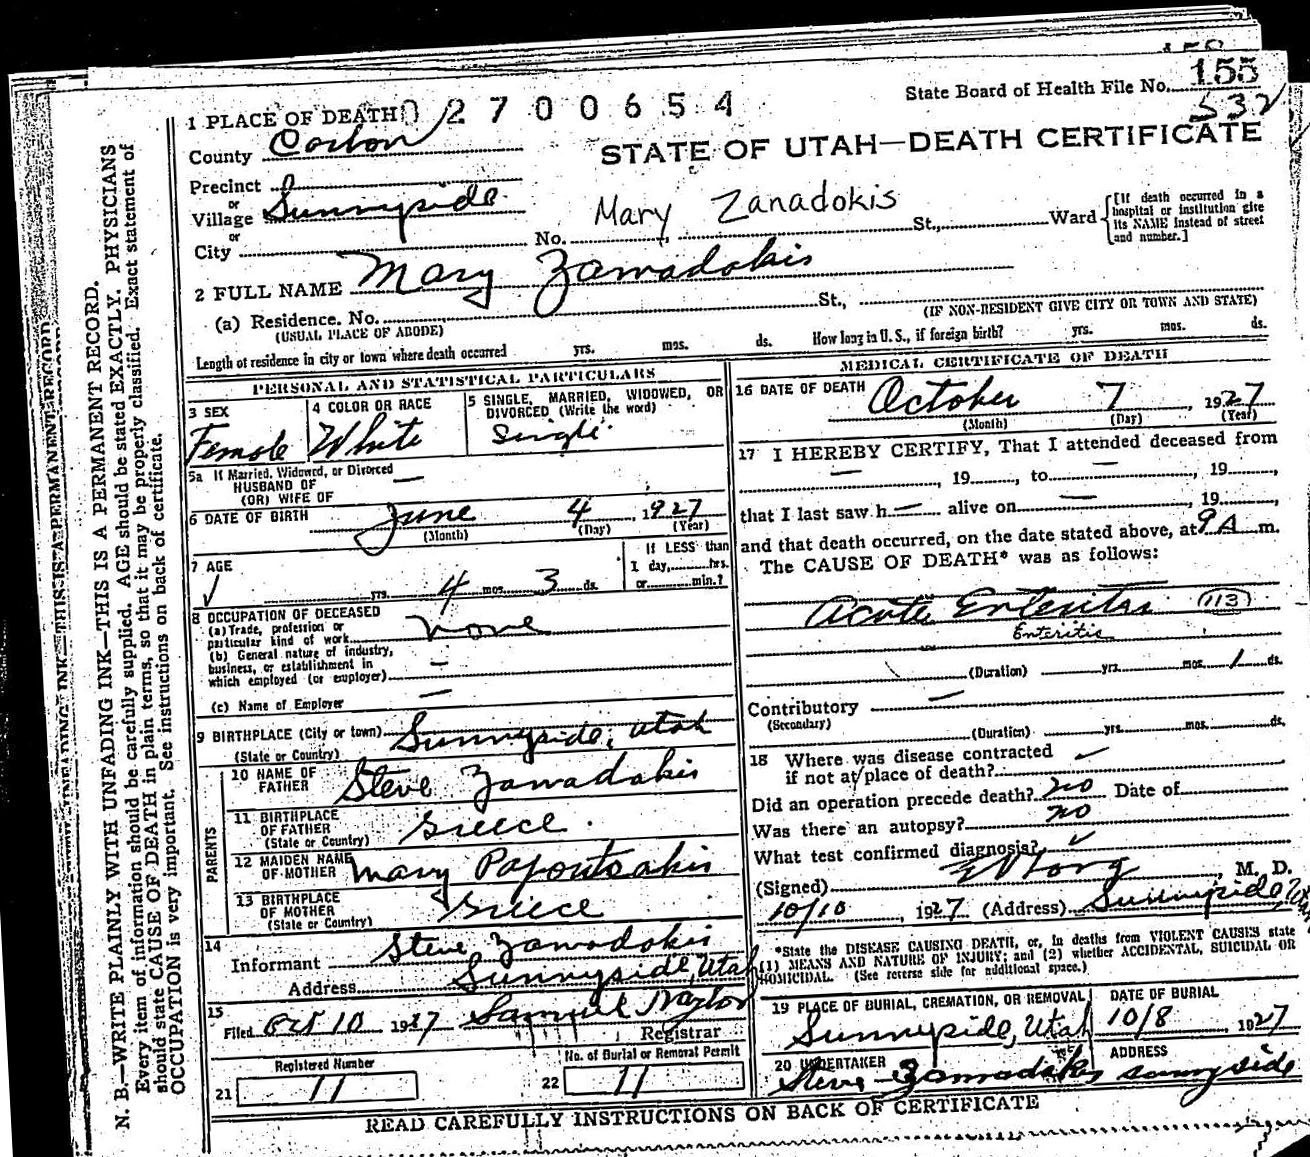 155
State Board of Health File No. 155
532
1 PLACE OF DEATH 02700654
County Carbon
STATE OF UTAH—DEATH CERTIFICATE
Precinct
or
Village Sunnyside
or
City
Mary Zanadokis
No. St., Ward
[If death occurred in a hospital or institution give its NAME instead of street and number.]
2 FULL NAME Mary Zamadakis
(a) Residence. No. St.,
(USUAL PLACE OF ABODE)
(IF NON-RESIDENT GIVE CITY OR TOWN AND STATE)
Length of residence in city or town where death occurred yrs. mos. ds. How long in U. S., if foreign birth? yrs. mos. ds.
PERSONAL AND STATISTICAL PARTICULARS
3 SEX Female
4 COLOR OR RACE White
5 SINGLE, MARRIED, WIDOWED, OR DIVORCED (Write the word) Single
5a If Married, Widowed, or Divorced
HUSBAND OF —
(OR) WIFE OF
6 DATE OF BIRTH June 4, 1927
(Month) (Day) (Year)
7 AGE
yrs. 4 mos. 3 ds.
If LESS than
1 day, hrs.
or min.?
8 OCCUPATION OF DECEASED
(a) Trade, profession or
particular kind of work none
(b) General nature of industry,
business, or establishment in
which employed (or employer) —
(c) Name of Employer —
9 BIRTHPLACE (City or town) Sunnyside, Utah
(State or Country)
PARENTS
10 NAME OF FATHER Steve Zamadakis
11 BIRTHPLACE OF FATHER Greece
(State or Country)
12 MAIDEN NAME OF MOTHER Mary Papoutsakis
13 BIRTHPLACE OF MOTHER Greece
(State or Country)
14
Informant Steve Zamadokis
Address Sunnyside, Utah
15
Filed Oct 10 1927 Samuel Naylor
Registrar
Registered Number
21 11
No. of Burial or Removal Permit
22 11
MEDICAL CERTIFICATE OF DEATH
16 DATE OF DEATH October 7, 1927
(Month) (Day) (Year)
17 I HEREBY CERTIFY, That I attended deceased from
—, 19, to —, 19,
that I last saw h— alive on —, 19,
and that death occurred, on the date stated above, at 9 A m.
The CAUSE OF DEATH* was as follows:
Acute Enteritis 113
Enteritis
(Duration) yrs. mos. 1 ds.
Contributory —
(Secondary)
(Duration) yrs. mos. ds.
18 Where was disease contracted
if not at place of death?
Did an operation precede death? no Date of
Was there an autopsy? no
What test confirmed diagnosis?
(Signed) , M. D.
10/10, 1927 (Address) Sunnyside, Utah
*State the DISEASE CAUSING DEATH, or, in deaths from VIOLENT CAUSES state
(1) MEANS AND NATURE OF INJURY; and (2) whether ACCIDENTAL, SUICIDAL OR
HOMICIDAL. (See reverse side for additional space.)
19 PLACE OF BURIAL, CREMATION, OR REMOVAL
Sunnyside, Utah
DATE OF BURIAL
10/8, 1927
20 UNDERTAKER
Steve Zamadakis
ADDRESS
sunnyside
READ CAREFULLY INSTRUCTIONS ON BACK OF CERTIFICATE
N. B.—WRITE PLAINLY WITH UNFADING INK—THIS IS A PERMANENT RECORD.
Every item of information should be carefully supplied. AGE should be stated EXACTLY. PHYSICIANS
should state CAUSE OF DEATH in plain terms, so that it may be properly classified. Exact statement of
OCCUPATION is very important. See instructions on back of certificate.